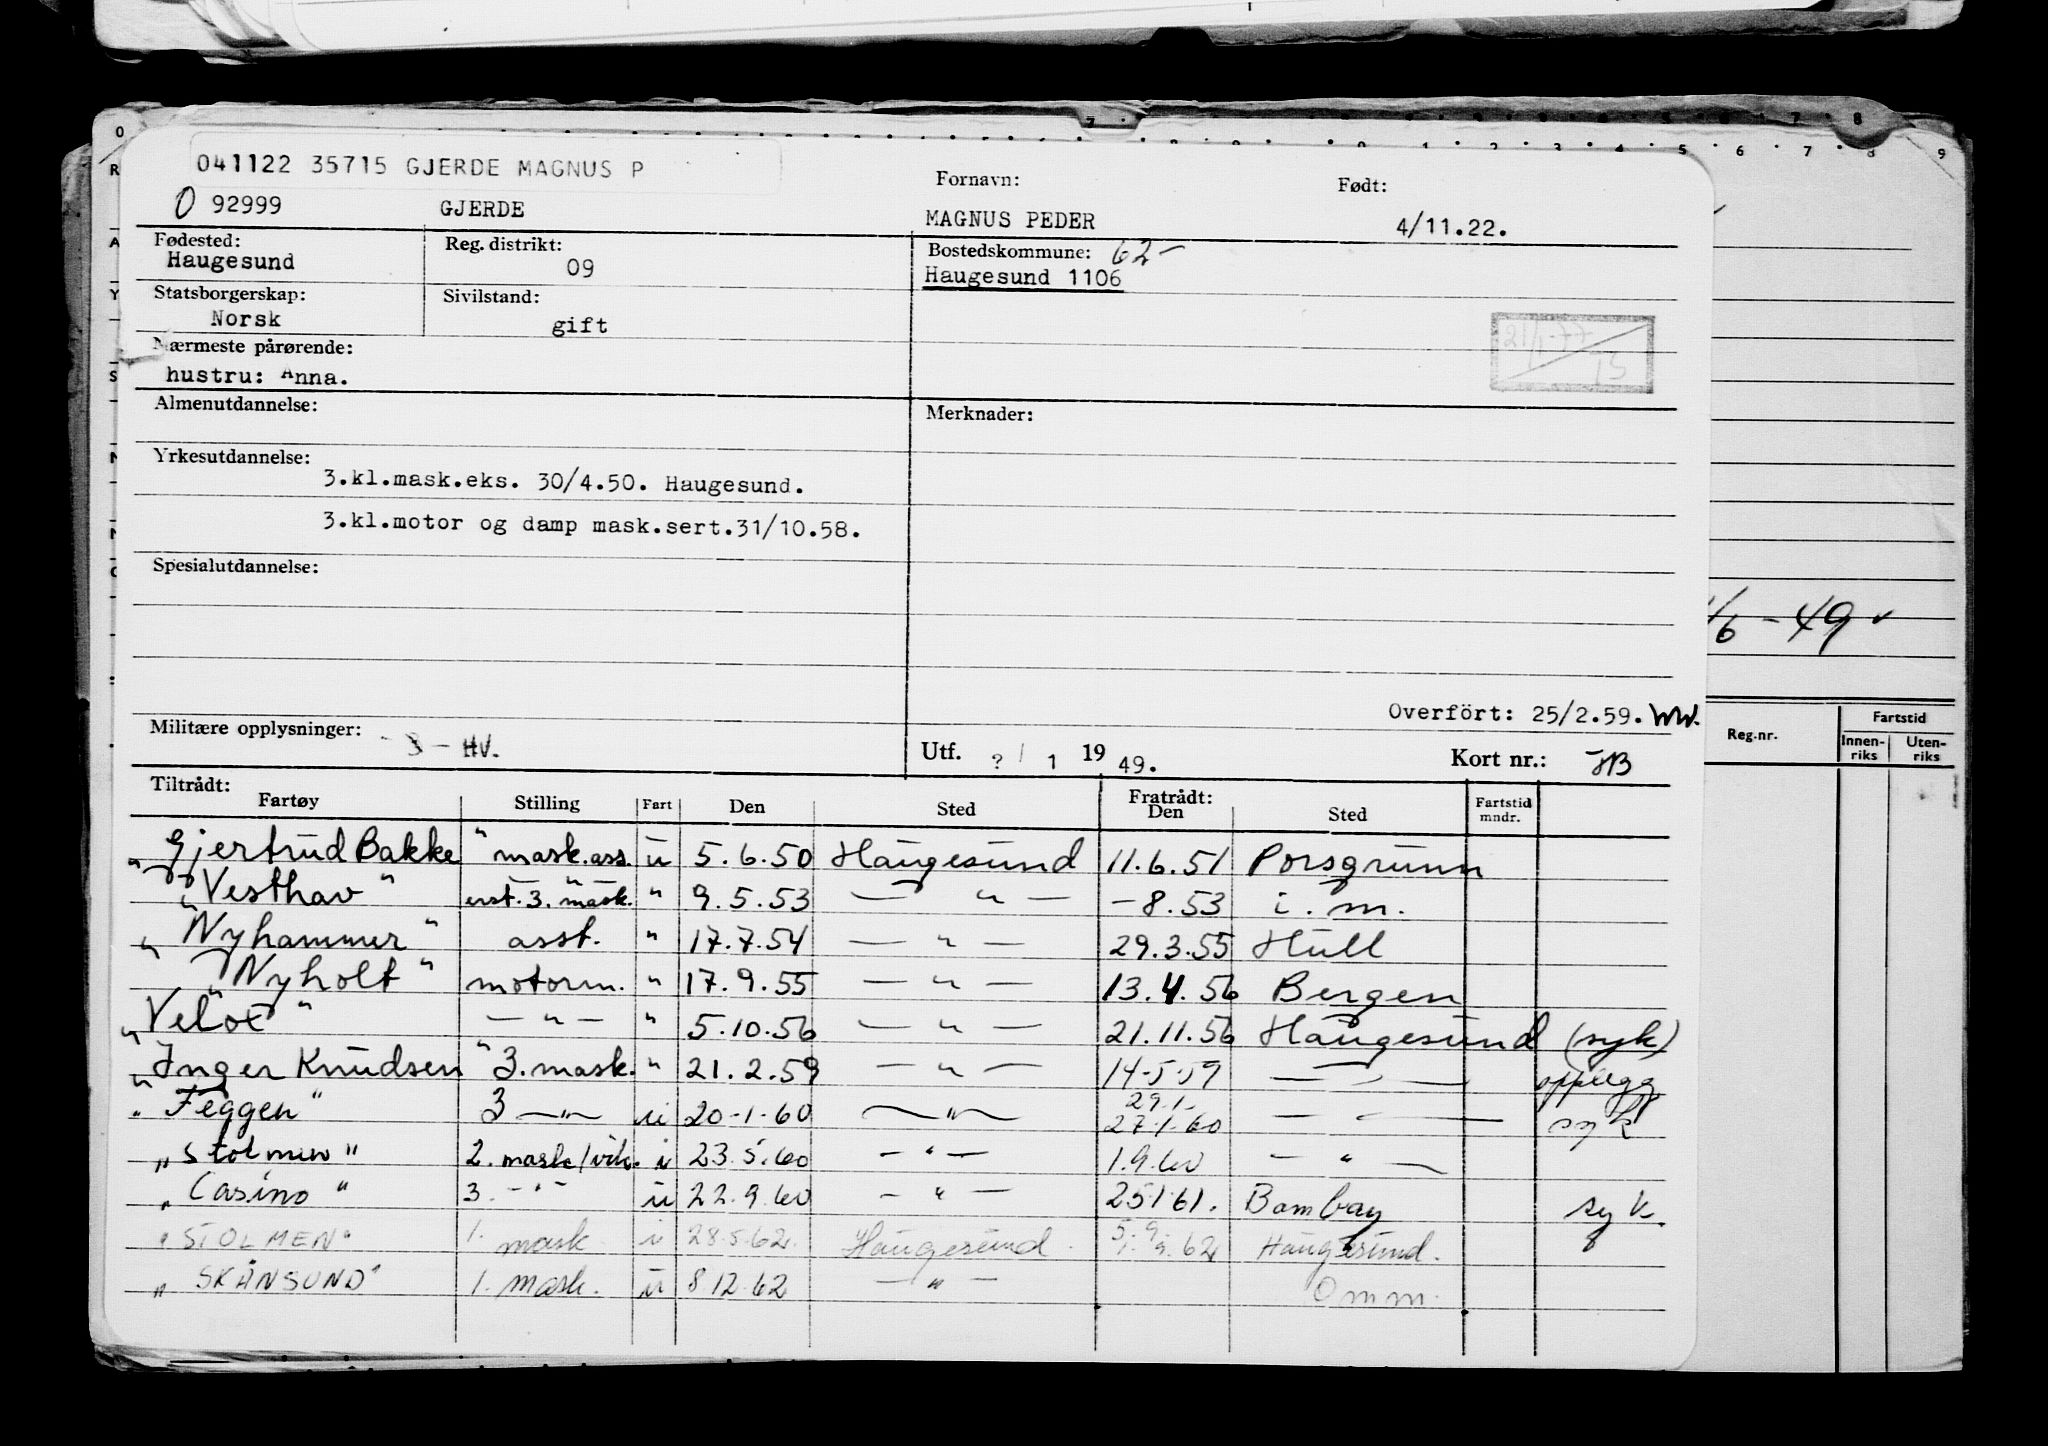 041122 35715 GJERDE MAGNUS P
0 92999 GJERDE
Fornavn: MAGNUS PEDER
Født: 4/11.22.
Fødested: Haugesund
Reg. distrikt: 09
Bostedskommune: 62-
Haugesund 1106
Statsborgerskap: Norsk
Sivilstand: gift
21/1-77
Nærmeste pårørende:
hustru: Anna.
Almenutdannelse:
Merknader:
Yrkesutdannelse:
3.kl.mask.eks. 30/4.50. Haugesund.
3.kl.motor og damp mask.sert.31/10.58.
Spesialutdannelse:
Overført: 25/2.59. WW.
Militære opplysninger: - HV.
Utf. ? / 1 1949.
Kort nr.:
Tiltrådt:
Fartøy Stilling Fart Den Sted Fratrådt: Den Sted Fartstid mndr.
"Gjertrud Bakke" mask.ass. u 5.6.50 Haugesund 11.6.51 Porsgrunn
"Vesthav" erst. 3. mask. " 9.5.53 — " — -8.53 i.m.
"Nyhammer" asst. " 17.7.54 — " — 29.3.55 Hull
"Nyholt" motorm. " 17.9.55 — " — 13.4.56 Bergen
"Velox" — " — " 5.10.56 — " — 21.11.56 Haugesund (syk)
"Inger Knudsen" 3. mask. " 21.2.59 — " — 14-5-59 — " — opplegg
"Feggen" 3 — " — u 20-1-60 — " — 29.1- 27.1.60 — " — syk
"Stolmen" 2. mask/vik. i 23.5.60 — " — 1.9.60 — " —
"Casino" 3. — " — u 22.9.60 — " — 25 1 61. Bombay syk.
"STOLMEN" 1. mask i 28.5.62. Haugesund. 5.9.62 Haugesund.
"SKÅNSUND" 1. mask. u 8 12.62 — " — Omm.
1/6 - 49
Reg.nr.
Fartstid
Innen-riks
Uten-riks